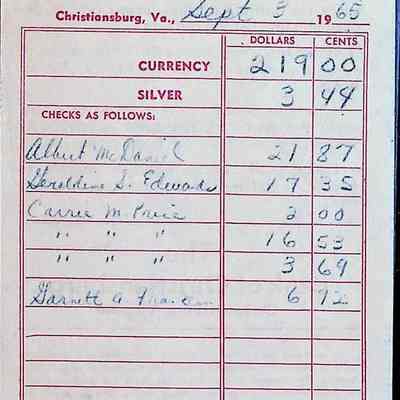 Christiansburg, Va., Sept 3 1965
DOLLARS CENTS
CURRENCY 219 00
SILVER 3 44
CHECKS AS FOLLOWS:
Albert McDaniel 21 87
Geraldine S. Edwards 17 35
Carrie M. Price 2 00
" " " 16 53
" " " 3 69
Garnett A. 6 72